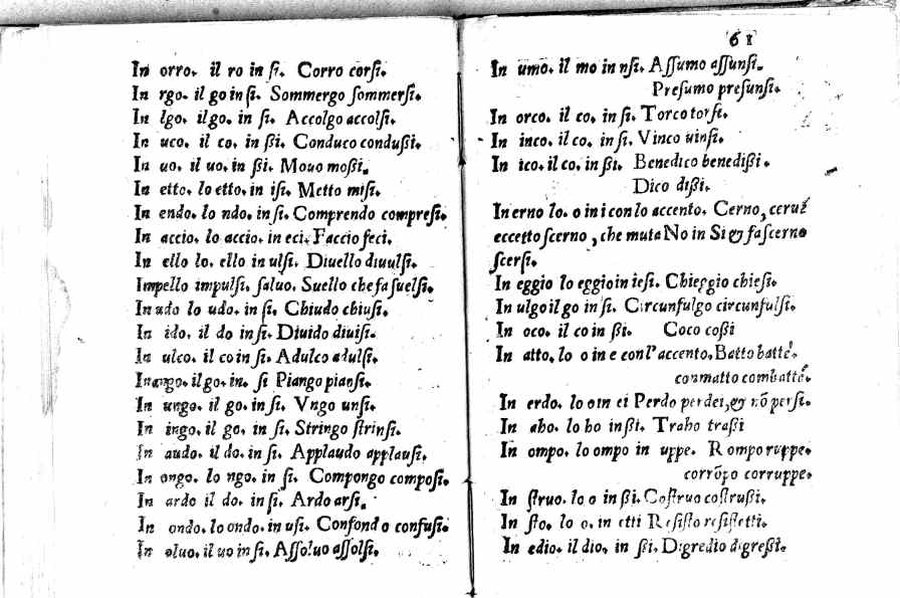 In orro. il ro in ſi. Corro corſi.
In rgo. il go in ſi. Sommergo ſommerſi.
In lgo. il go. in ſi. Accolgo accolſi.
In uco. il co. in ßi. Conduco condußi.
In uo. il uo. in ßi. Mouo moßi.
In etto. lo etto. in iſi. Metto miſi.
In endo. lo ndo. in ſi. Comprendo compreſi.
In accio. lo accio. in eci. Faccio feci.
In ello lo. ello in ulſi. Diuello diuulſi.
Impello impulſi. ſaluo. Suello che fa ſuelſi.
In udo lo udo. in ſi. Chiudo chiuſi.
In ido. il do in ſi. Diuido diuiſi.
In ulco. il co in ſi. Adulco adulſi.
In ango. il go. in. ſi Piango pianſi.
In ungo. il go. in ſi. Vngo unſi.
In ingo. il go. in ſi. Stringo ſtrinſi.
In audo. il do. in ſi. Applaudo applauſi.
In ongo. lo ngo. in ſi. Compongo compoſi.
In ardo il do. in ſi. Ardo arſi.
In ondo. lo ondo. in uſi. Confondo confuſi.
In oluo. il uo in ſi. Aſſoluo aſſolſi.
61
In umo. il mo in nſi. Aſſumo aſſunſi.
Preſumo preſunſi.
In orco. il co. in ſi. Torco torſi.
In inco. il co. in ſi. Vinco uinſi.
In ico. il co. in ßi. Benedico benedißi.
Dico dißi.
In erno lo. o in i con lo accento. Cerno, cerui
eccetto ſcerno, che muta No in Si & fa ſcerno
ſcerſi.
In eggio lo eggio in ieſi. Chieggio chieſi.
In ulgo il go in ſi. Circunfulgo circunfulſi.
In oco. il co in ßi. Coco coßi
In atto. lo o in e con l'accento. Batto battè.
conmatto combattè.
In erdo. lo o in ei Perdo perdei, & nō perſi.
In aho. lo ho in ßi. Traho traßi
In ompo. lo ompo in uppe. Rompo ruppe.
corrōpo corruppe.
In ſtruo. lo o in ßi. Coſtruo coſtrußi.
In ſto. lo o. in etti Reſiſto reſiſtetti.
In edio. il dio. in ßi. Digredio digreßi.